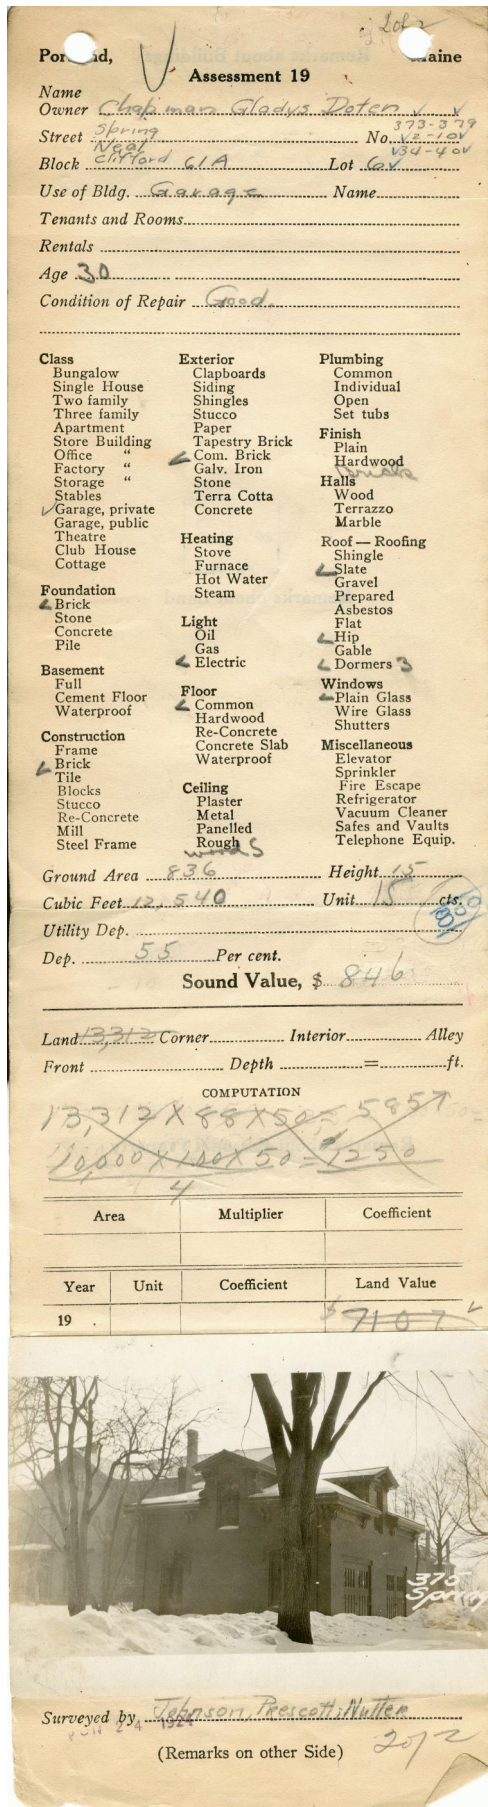 2 of 2
Portland, Maine
Assessment 19
Name
Owner Chapman Gladys Doten
373-379
Street Spring No. 2-10
Neal 34-40
Block Clifford 61A Lot 6
Use of Bldg. Garage Name
Tenants and Rooms
Rentals
Age 30
Condition of Repair Good.
Class
Bungalow
Single House
Two family
Three family
Apartment
Store Building
Office "
Factory "
Storage "
Stables
Garage, private
Garage, public
Theatre
Club House
Cottage
Foundation
Brick
Stone
Concrete
Pile
Basement
Full
Cement Floor
Waterproof
Construction
Frame
Brick
Tile
Blocks
Stucco
Re-Concrete
Mill
Steel Frame
Exterior
Clapboards
Siding
Shingles
Stucco
Paper
Tapestry Brick
Com. Brick
Galv. Iron
Stone
Terra Cotta
Concrete
Heating
Stove
Furnace
Hot Water
Steam
Light
Oil
Gas
Electric
Floor
Common
Hardwood
Re-Concrete
Concrete Slab
Waterproof
Ceiling
Plaster
Metal
Panelled
Rough
wood S
Plumbing
Common
Individual
Open
Set tubs
Finish
Plain
Hardwood
Bricks
Halls
Wood
Terrazzo
Marble
Roof — Roofing
Shingle
Slate
Gravel
Prepared
Asbestos
Flat
Hip
Gable
Dormers 3
Windows
Plain Glass
Wire Glass
Shutters
Miscellaneous
Elevator
Sprinkler
Fire Escape
Refrigerator
Vacuum Cleaner
Safes and Vaults
Telephone Equip.
Ground Area 836 Height 15
Cubic Feet 12,540 Unit 15 cts.
Utility Dep.
Dep. 55 Per cent.
Sound Value, $ 846
Land 13,312 Corner Interior Alley
Front Depth = ft.
COMPUTATION
13,312 X 88 X 50 = 5857
10,000 X 100 X 50 = 1250
4
Area Multiplier Coefficient
Year Unit Coefficient Land Value
19 . $7107
375
Spring
Surveyed by Johnson, Prescott, Nutter
JUN 24 1924
(Remarks on other Side)
2 of 2